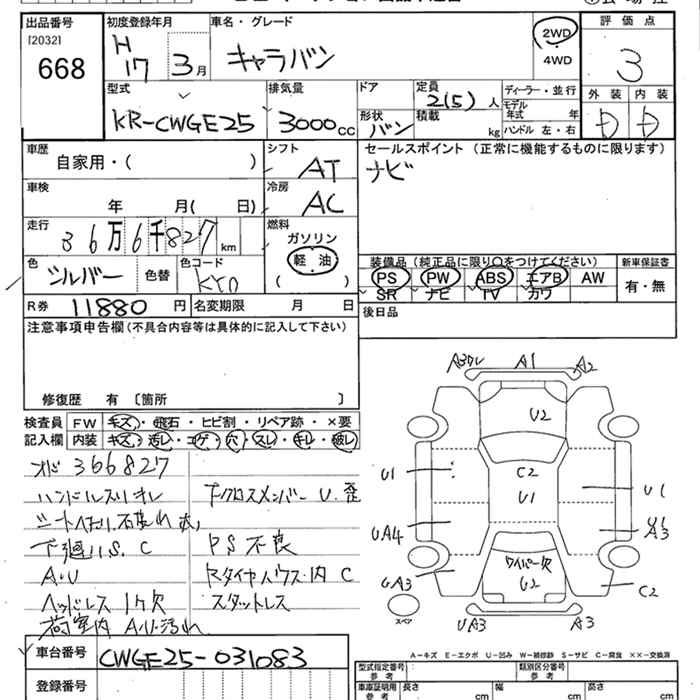 出品番号 初度登録年月 車名・グレード 評価点
[2032] H 17 3月 キャラバン 2WD 4WD 3
668
型式 排気量 ドア 定員 ディーラー・並行 外装 内装
KR-CWGE25 3000cc 形状 バン 2(5)人 積載 kg モデル年式 年 ハンドル 左・右 D D
車歴 シフト セールスポイント (正常に機能するものに限ります)
自家用・( ) AT ナビ
車検 冷房
年 月( 日) AC
走行 燃料
36万6千827km ガソリン
色 色コード 軽油 装備品(純正品に限り○をつけてください) 新車保証書
シルバー 色替 KY0 ( ) PS PW ABS エアB AW 有・無
SR ナビ TV カワ
R券 11880円 名変期限 月 日 後日品
注意事項申告欄(不具合内容等は具体的に記入して下さい)
修復歴 有 〔箇所 〕
検査員 FW キズ・飛石・ヒビ割・リペア跡・×要
記入欄 内装 キズ・汚レ・コゲ・穴・スレ・キレ・破レ
メド 366827
ハンドルスリ オレ
下クロスメンバー U.歪
下廻りS.C PS不良
A・U スタイヤハウス内 C
ヘッドレス 1ケ欠 スタットレス
荷室内 A.U.汚れ
車台番号 CWGE25-031083
登録番号
A1 A2
U2
C2
U1 U1
U1
UA4 U1 A3
UA3 ワイパー欠 U2 C2
スペア UA3 A3
A－キズ E－エクボ U－凹み W－補修跡 S－サビ C－腐食 ××－交換済
型式指定番号 類別区分番号
参考 参考
車庫証明用 長さ 幅 高さ
参考 cm cm cm